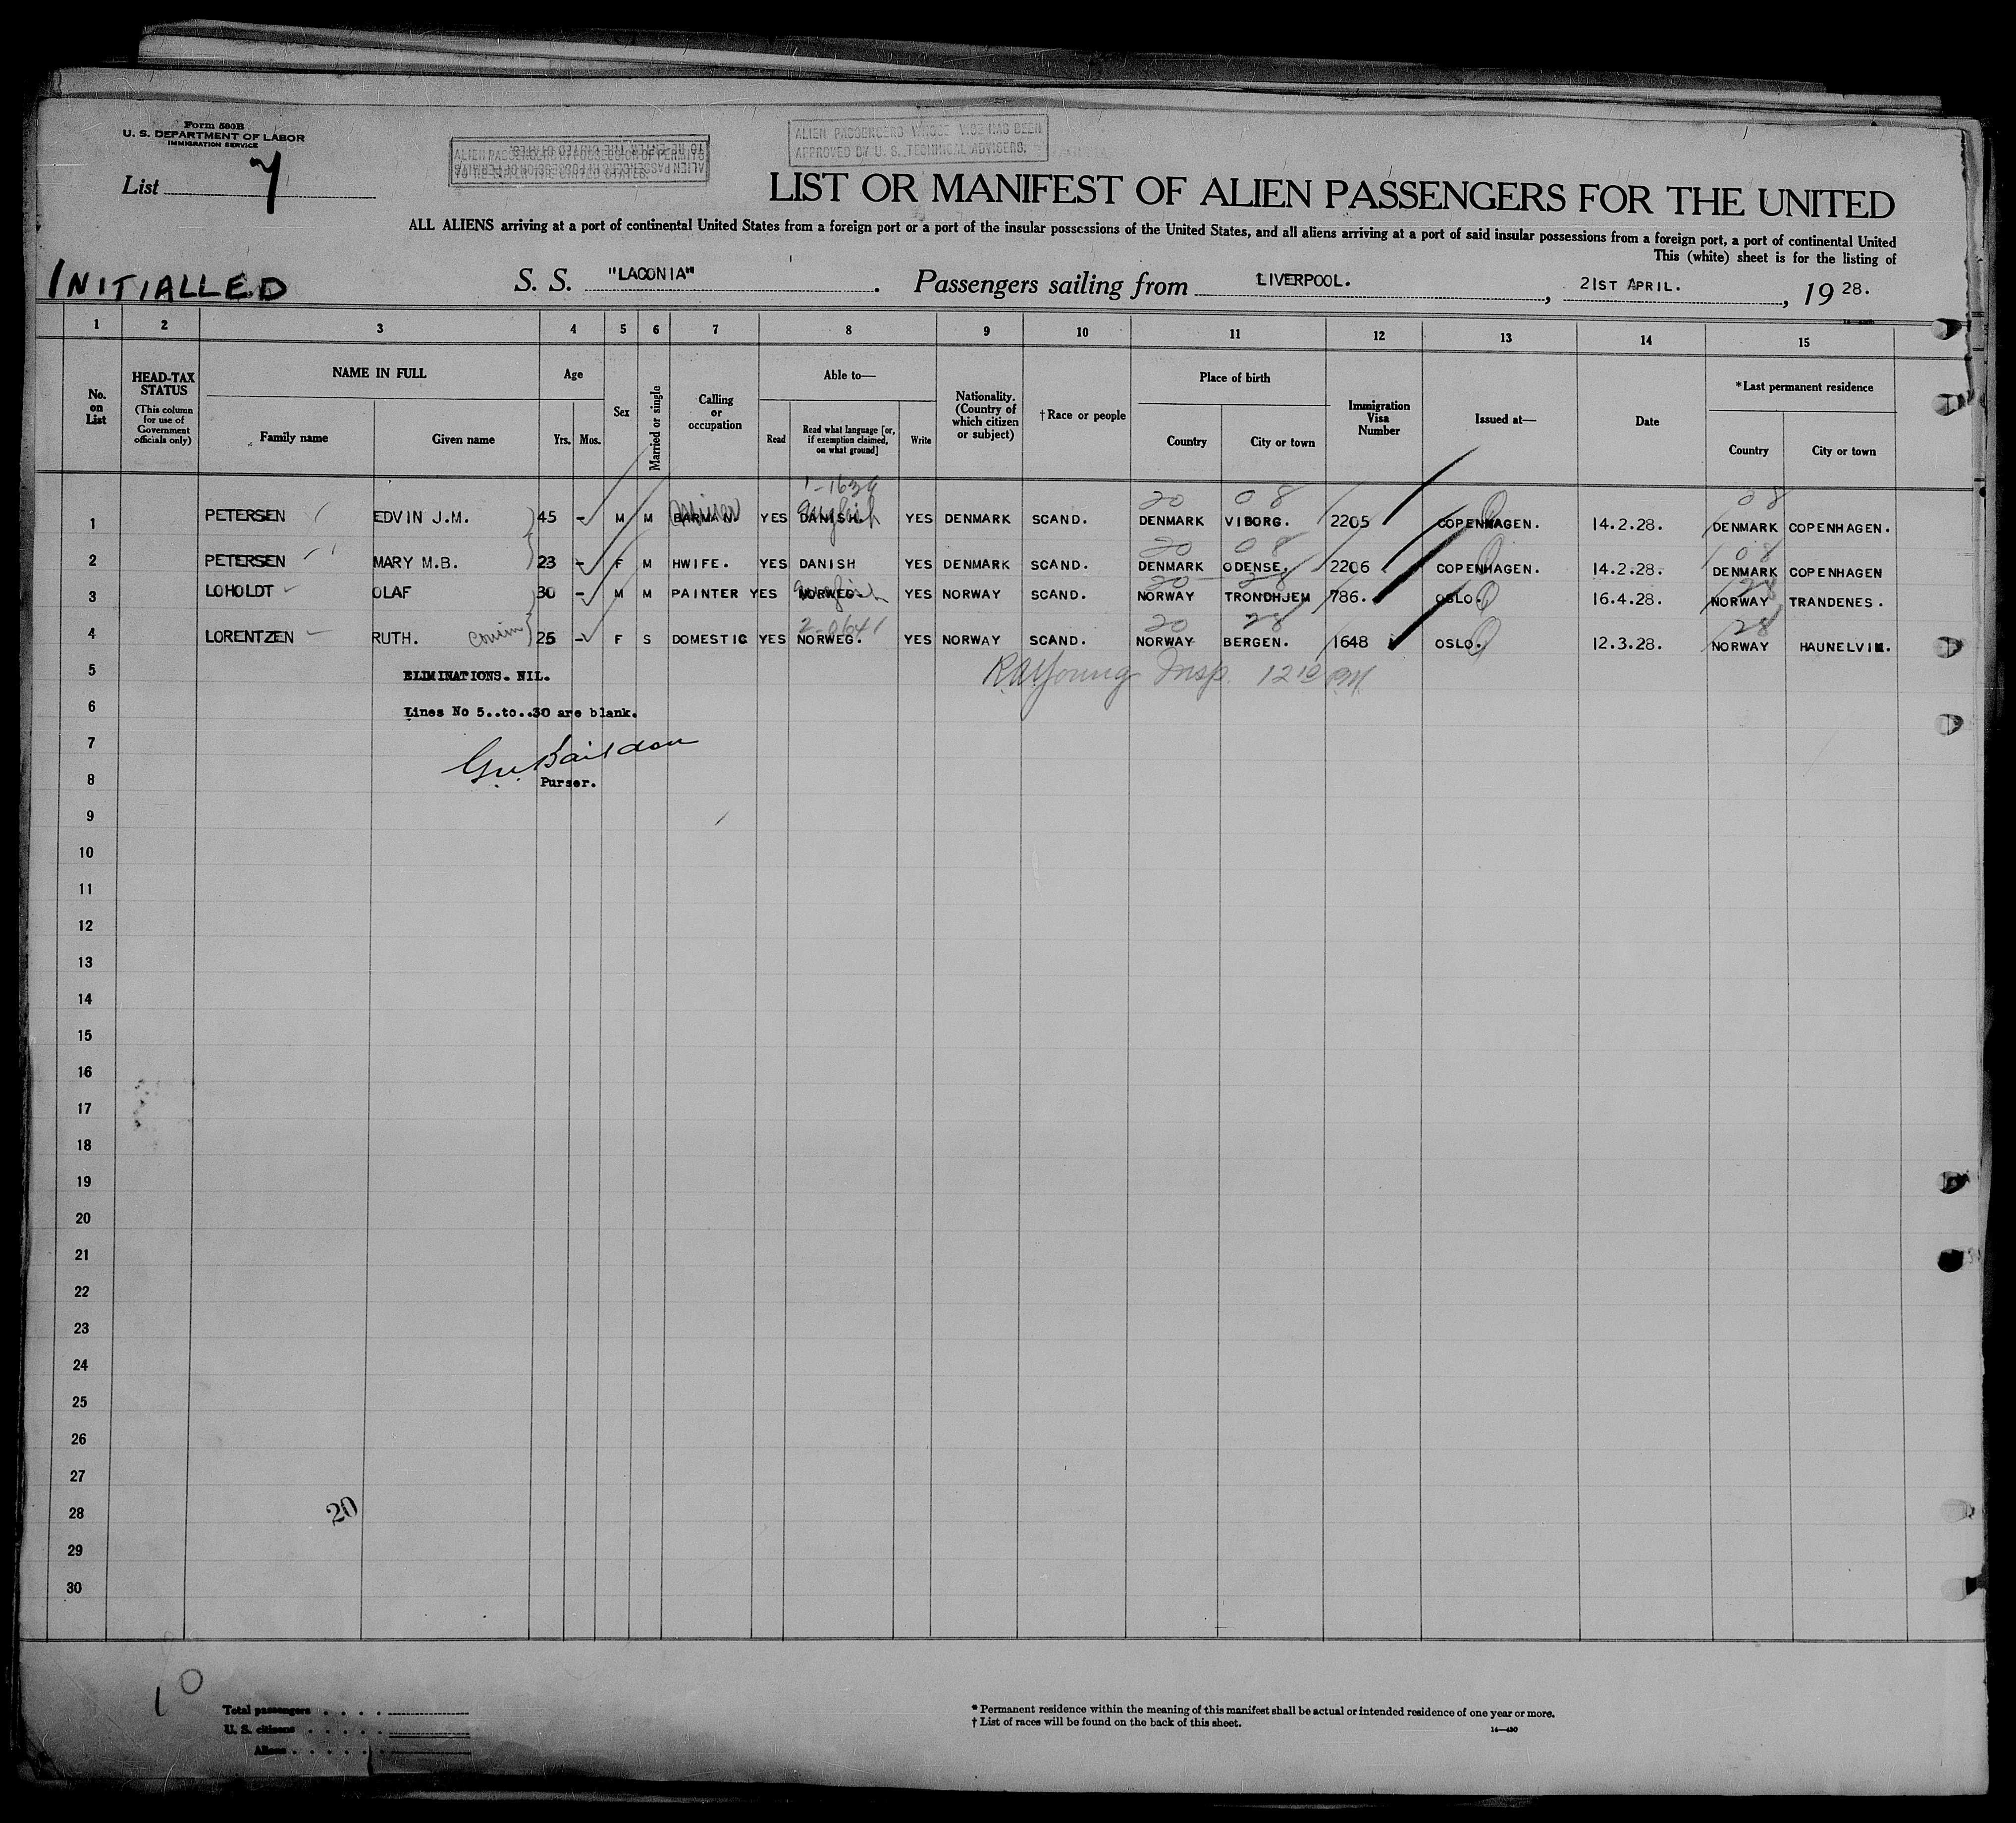 Form 500B
U. S. DEPARTMENT OF LABOR
IMMIGRATION SERVICE
List 7
ALIEN PASSENGERS IN POSSESSION OF PERMITS
TO RE-ENTER THE UNITED STATES.
ALIEN PASSENGERS WHOSE VISE HAS BEEN
APPROVED BY U. S. TECHNICAL ADVISERS.
LIST OR MANIFEST OF ALIEN PASSENGERS FOR THE UNITED
ALL ALIENS arriving at a port of continental United States from a foreign port or a port of the insular possessions of the United States, and all aliens arriving at a port of said insular possessions from a foreign port, a port of continental United
This (white) sheet is for the listing of
INITIALLED
S. S. "LACONIA". Passengers sailing from LIVERPOOL., 21ST APRIL., 19 28.
1 2 3 4 5 6 7 8 9 10 11 12 13 14 15
No. on List
HEAD-TAX STATUS (This column for use of Government officials only)
NAME IN FULL
Family name Given name
Age
Yrs. Mos.
Sex
Married or single
Calling or occupation
Able to—
Read Read what language [or, if exemption claimed, on what ground] Write
Nationality. (Country of which citizen or subject)
† Race or people
Place of birth
Country City or town
Immigration Visa Number
Issued at—
Date
* Last permanent residence
Country City or town
1-1634
20 08 08
1 PETERSEN EDVIN J.M. 45 - M M BARMAN. YES DANISH. English YES DENMARK SCAND. DENMARK VIBORG. 2205 COPENHAGEN. 14.2.28. DENMARK COPENHAGEN.
20 08 08
2 PETERSEN MARY M.B. 23 - F M HWIFE. YES DANISH YES DENMARK SCAND. DENMARK ODENSE. 2206 COPENHAGEN. 14.2.28. DENMARK COPENHAGEN
20 28 28
3 LOHOLDT OLAF 30 - M M PAINTER YES NORWEG. English YES NORWAY SCAND. NORWAY TRONDHJEM 786. OSLO. 16.4.28. NORWAY TRANDENES.
2-01641 20 28 28
4 LORENTZEN RUTH. cousin 26 - F S DOMESTIC YES NORWEG. YES NORWAY SCAND. NORWAY BERGEN. 1648 OSLO. 12.3.28. NORWAY HAUNELVIK.
5 ELIMINATIONS. NIL.
Young Insp. 12 10 PM
6 Lines No 5..to..30 are blank.
7
8 Purser.
9
10
11
12
13
14
15
16
17
18
19
20
21
22
23
24
25
26
27
28 20
29
30
10
Total passengers
U. S. citizens
Aliens
* Permanent residence within the meaning of this manifest shall be actual or intended residence of one year or more.
† List of races will be found on the back of this sheet.
14—430